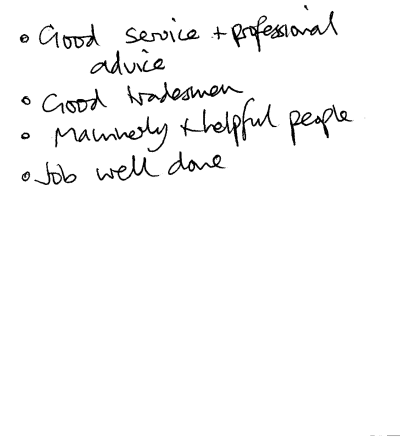 • Good service + professional
advice
• Good tradesmen
• Mannerly & helpful people
• Job well done